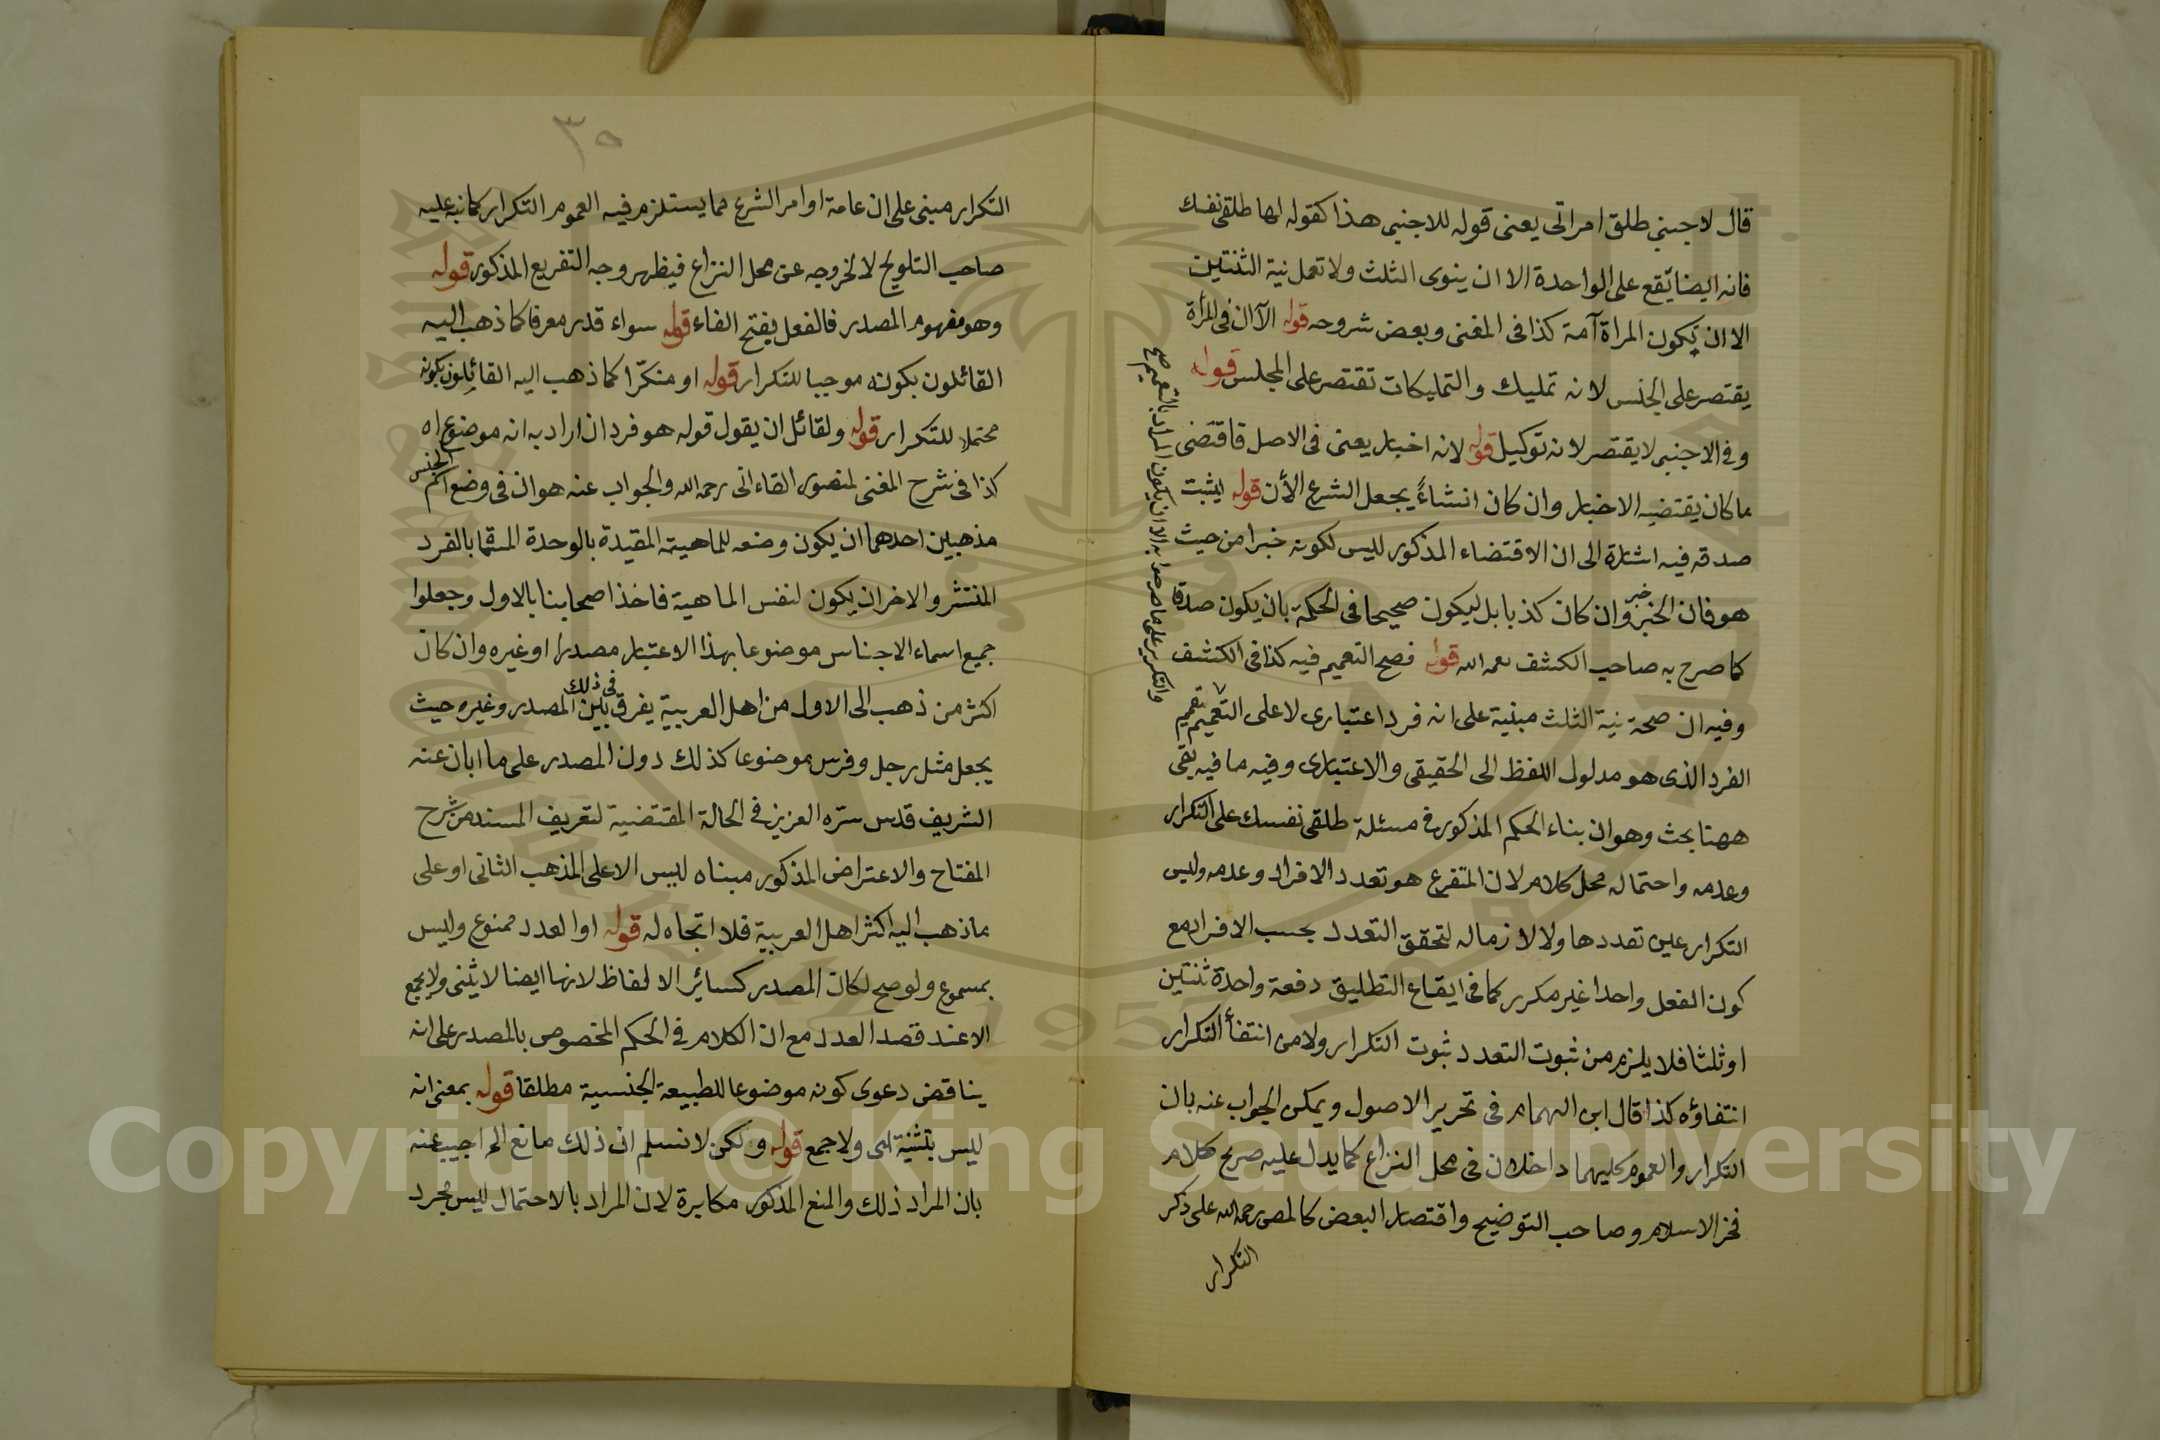 قال لاجنبي طلق امراتى يعنى قوله للاجنبى هذا كقوله لها طلقى نفسك
فانه ايضا يقع على الواحدة الا ان ينوى الثلث ولا تعمل نية الثنتين
الا ان يكون المراة آمة كذا فى المغنى وبعض شروحه قوله الا ان فى المرأة
يقتصر على المجلس لانه تمليك والتمليكات تقتصر على المجلس قوله
وفى الاجنبى لا يقتصر لانه توكيل قوله لانه اخبار يعنى فى الاصل فاقتضى
ما كان يقتضيه الاخبار وان كان انشاءً يجعل الشرع الأن قوله ليثبت
صدقه فيه اشارة الى ان الاقتضاء المذكور لليس لكونه خبرا من حيث
هو فان الخبر خبر وان كان كذبا بل ليكون صحيحا فى الحكمة بان يكون صدقا
كما صرح به صاحب الكشف رحمه الله قوله فصح التعميم فيه كذا فى الكشف
وفيه ان صحة نية الثلث مبنية على انه فرد اعتبارى لا على التعميم تعميم
الفرد الذى هو مدلول اللفظ الى الحقيقى والاعتبارى وفيه ما فيه بقى
ههنا بحث وهو ان بناء الحكم المذكور فى مسئلة طلقى نفسك على التكرار
وعدمه واحتماله محل كلام لان المتفرع هو تعدد الافراد وعدمه وليس
التكرار عين تعددها ولا لازما له لتحقق التعدد بحسب الافراد مع
كون الفعل واحدا غير مكرر كما فى ايقاع التطليق دفعة واحدة ثنتين
او ثلثا فلا يلزم من ثبوت التعدد ثبوت التكرار ولا من انتفأ التكرار
انتفاؤه كذا قال ابن الهمام فى تحرير الاصول ويمكن الجواب عنه بان
التكرار والعموم كليهما داخلان فى محل النزاع كما يدل عليه صريح كلام
فخر الاسلام وصاحب التوضيح واقتصار البعض كالمص رحمه الله على ذكر
التكرار
المراد بالتعميم صح
الا ان يكون
به
والتكرير على ما صرحوا
٣٥
التكرار مبنى على ان عامة اوامر الشرع مما يستلزم فيه العموم التكرار كما نبه عليه
صاحب التلويح لا لخروجه عن محل النزاع فيظهر وجه التفريع المذكور قوله
وهو مفهوم المصدر فالفعل بفتح الفاء قوله سواء قدر معرفا كما ذهب اليه
القائلون بكونه موجبا للتكرار قوله او منكّرا كما ذهب اليه القائلون بكونه
محتملا للتكرار قوله ولقائل ان يقول قوله هو فرد ان اراد به انه موضوع اه
كذا فى شرح المغنى لمنصور القاءانى رحمه الله والجواب عنه هو ان فى وضع اسم الجنس
مذهبين احدهما ان يكون وضعه للماهية المقيدة بالوحدة المسماة بالفرد
المنتشر والاخر ان يكون لنفس الماهية فاخذ اصحابنا بالاول وجعلوا
جميع اسماء الاجناس موضوعا بهذا الاعتبار مصدرا او غيره وان كان
اكثر من ذهب الى الاول من اهل العربية يفرق فى ذلك بين المصدر وغيره حيث
يجعل مثل رجل وفرس موضوعا كذلك دون المصدر على ما ابان عنه
الشريف قدس سره العزيز فى الحالة المقتضية لتعريف المسند من شرح
المفتاح والاعتراض المذكور مبناه ليس الا على المذهب الثانى او على
ما ذهب اليه اكثر اهل العربية فلا اتجاه له قوله او العدد ممنوع وليس
بمسموع ولو صح لكان المصدر كسائر الالفاظ لانها ايضا لا يثنى ولا يجمع
الا عند قصد العدد مع ان الكلام فى الحكم المخصوص بالمصدر على انه
يناقض دعوى كونه موضوعا للطبيعة الجنسية مطلقا قوله بمعنى انه
ليس بتثنية اى ولا جمع قوله ولكن لا نسلم ان ذلك مانع الخ اجيب عنه
بان المراد ذلك والمنع المذكور مكابرة لان المراد بالاحتمال لليس مجرد
Copyright © King Saud University
1957